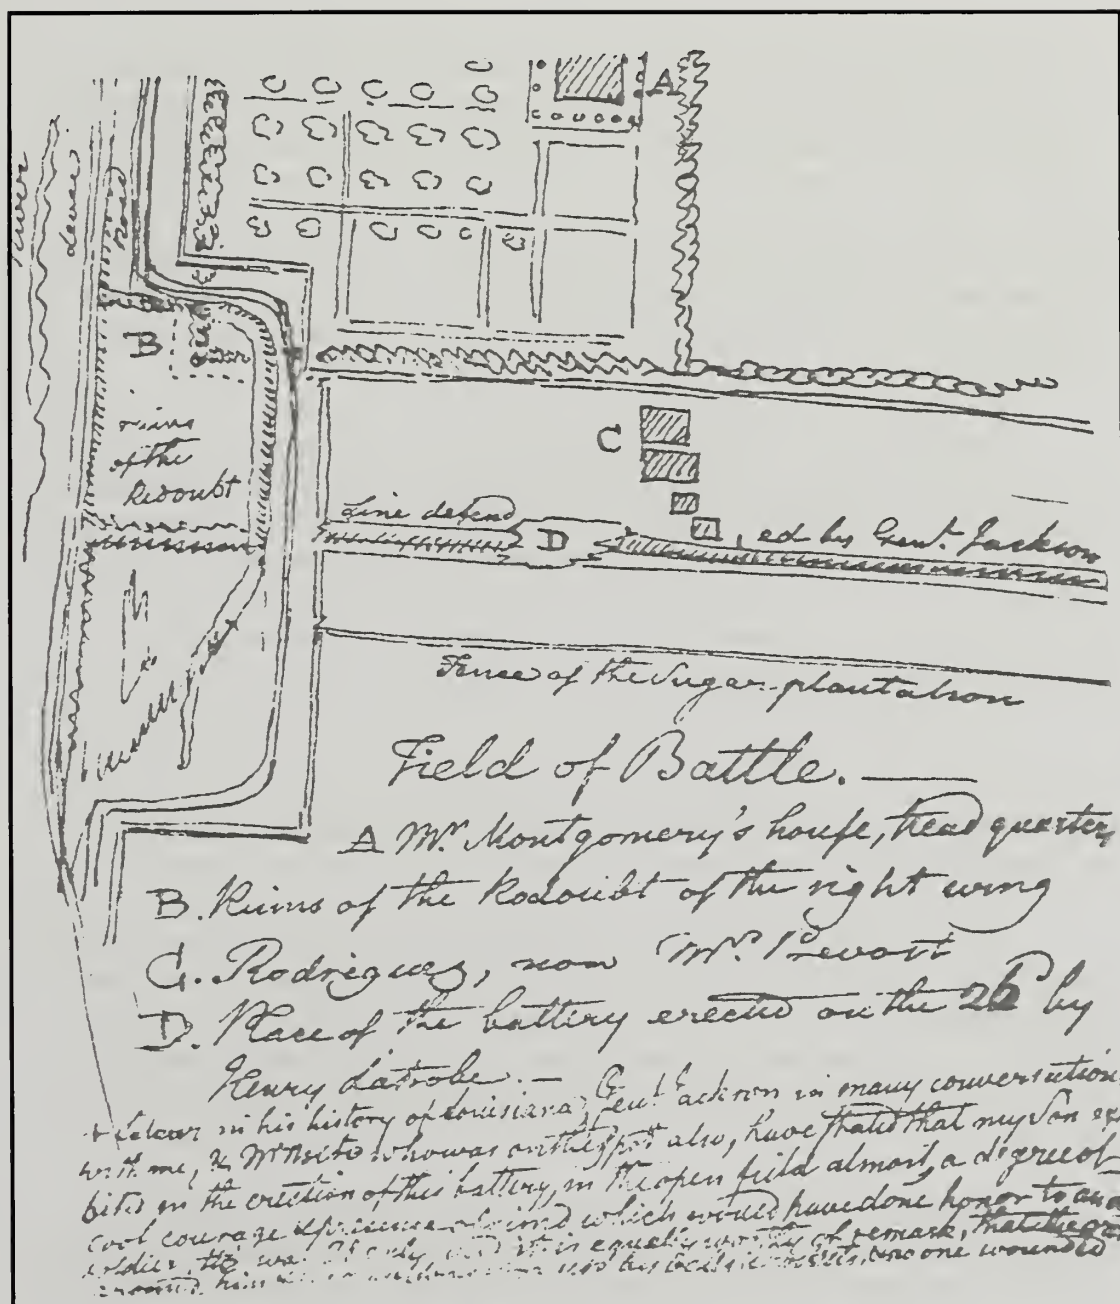 A
River
Levee
Road
B
ruins
of the
Redoubt
C
Line defend
D
, ed by Genl. Jackson
Fence of the Sugar plantation
Field of Battle.
A Mr. Montgomery's house, head quarters
B. Ruins of the Redoubt of the right wing
C. Rodriguez, now Mr. Prevost
D. Place of the battery erected on the 26 by
Henry Latrobe. —
in his history of Louisiana, Genl. Jackson in many conversations
with me, & Mr. who was on the spot also, have stated that my Son
bited in the erection of this battery, in the open field almost, a degree of
cool courage & presence of mind which would have done honor to any
soldier, it is equally worthy of remark, that
around him no one wounded